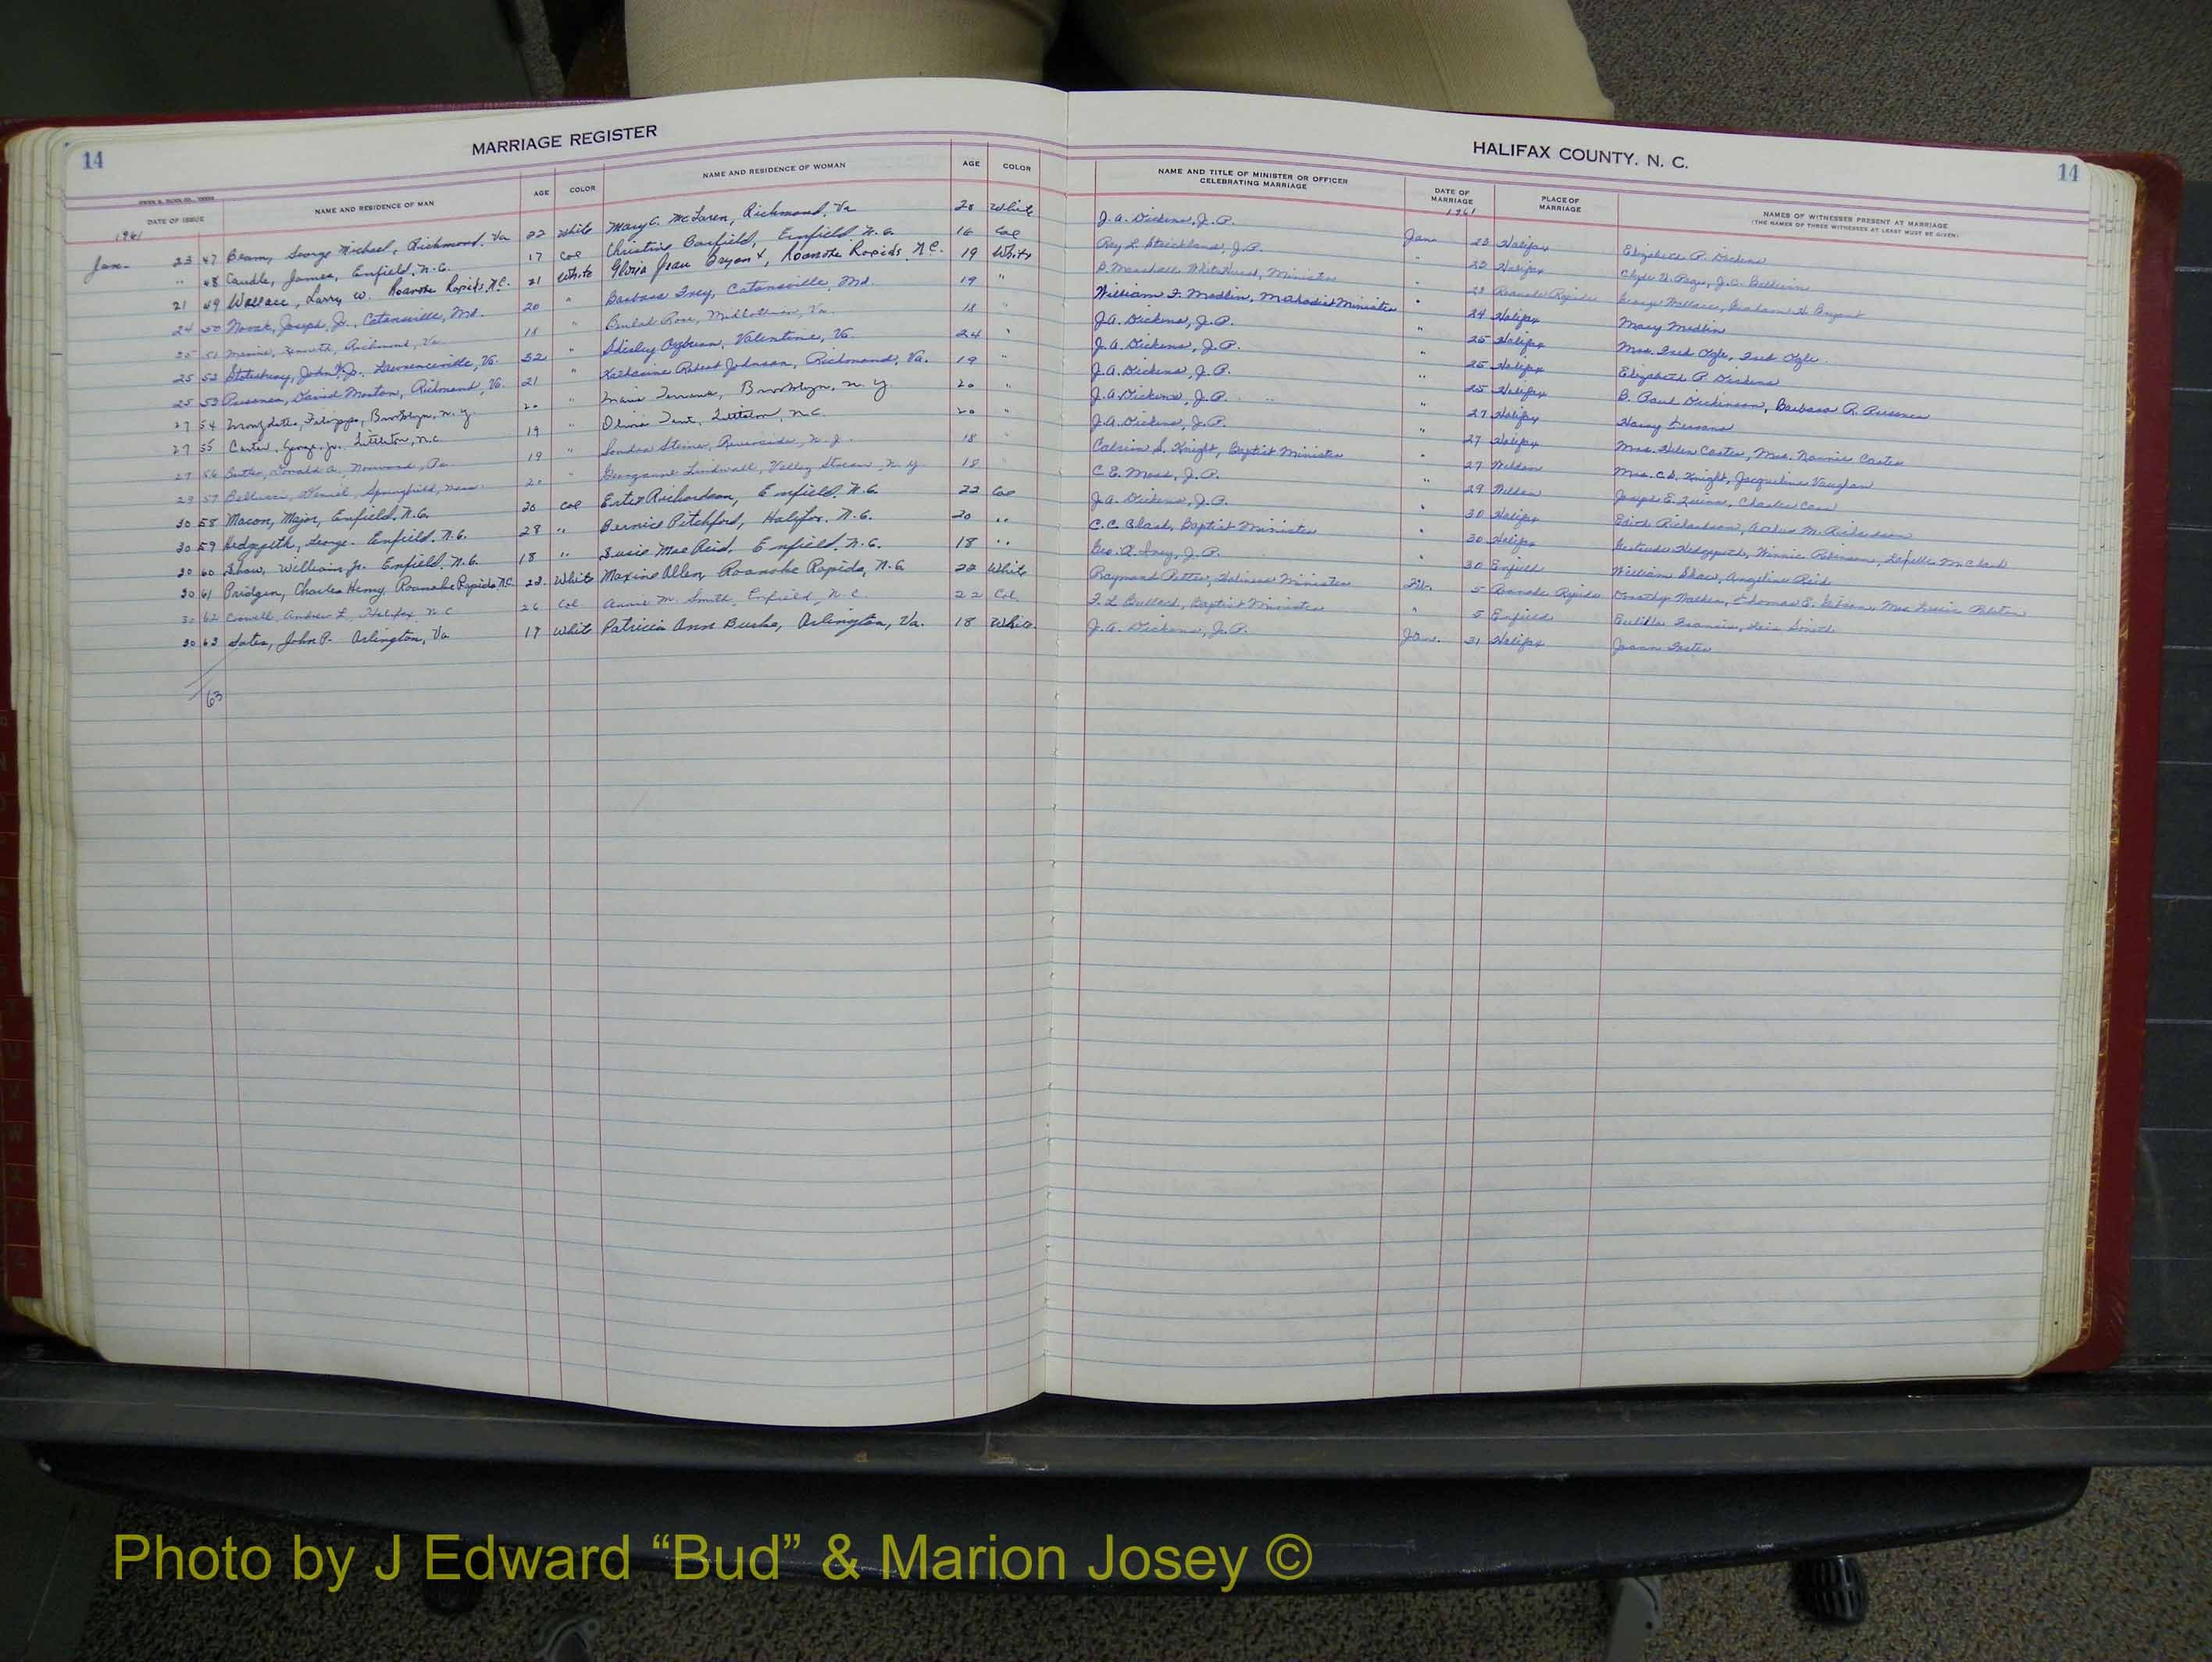 14 MARRIAGE REGISTER
HALIFAX COUNTY, N. C. 14
DATE OF ISSUE NAME AND RESIDENCE OF MAN AGE COLOR NAME AND RESIDENCE OF WOMAN AGE COLOR NAME AND TITLE OF MINISTER OR OFFICER CELEBRATING MARRIAGE DATE OF MARRIAGE PLACE OF MARRIAGE NAMES OF WITNESSES PRESENT AT MARRIAGE (THE NAMES OF THREE WITNESSES AT LEAST MUST BE GIVEN)
1961 1961
Jan. 23 47 Beam, George Michael, Richmond, Va 22 White Mary C. McLaren, Richmond, Va 28 White J. A. Dickens, J. P. Jan 23 Halifax Elizabeth P. Dickens
" 48 Caudle, James, Enfield, N. C. 17 Col Christine Barfield, Enfield N. C. 16 Col Roy L. Strickland, J. P. " 22 Halifax Clyde
21 49 Wallace, Larry W. Roanoke Rapids, N.C. 21 White Gloria Jean Bryant, Roanoke Rapids, N.C. 19 White Marshall Minister 23 Roanoke Rapids George Wallace, Graham H. Bryant
24 50 Novak, Joseph, Jr., Catonsville, Md. 20 " Barbara Frey, Catonsville, Md. 19 " William F. Medlin, Methodist Minister " 24 Halifax Mary Medlin
25 51 Richmond, Va 18 " Beulah Rose, Midlothian, Va. 18 " J. A. Dickens, J. P. " 25 Halifax Mrs. Fred Ogle, Fred Ogle
25 52 John Jr. Lawrenceville, Va. 32 " Shirley Valentine, Va. 24 " J. A. Dickens, J. P. " 25 Halifax Elizabeth P. Dickens
25 53 David Morton, Richmond, Va. 21 " Katharine Johnson, Richmond, Va. 19 " J. A. Dickens, J. P. " 25 Halifax B. Paul Dickinson, Barbara R.
27 54 Filippo, Brooklyn, N. Y 20 " Maria Brooklyn, N. Y 20 " J. A. Dickens, J. P. " 27 Halifax Harry
27 55 Carter, George, Jr. Littleton, N.C. 19 " Olivia Littleton, N.C. 20 " J. A. Dickens, J. P. " 27 Halifax Mrs. Helen Carter, Mrs. Nannie Carter
27 56 Butler, Donald A., Norwood, Pa. 19 " Sandra Steiner, Riverside, N. J. 18 " Calvin S. Knight, Baptist Minister " 27 Weldon Mrs. C.S. Knight, Jacqueline Vaughan
29 57 Daniel, Springfield, Mass. 20 " Georganne Lindwall, Valley Stream, N. Y 18 " C. E. Moss, J. P. " 29 Weldon Joseph E. Quinn, Charles
30 58 Macon, Major, Enfield, N. C. 20 Col Ester Richardson, Enfield, N. C. 22 Col J. A. Dickens, J. P. " 30 Halifax Edith Richardson, M. Richardson
30 59 Hedgepeth, George. Enfield, N. C. 28 " Bernice Pitchford, Halifax, N. C. 20 " C. C. Clark, Baptist Minister " 30 Halifax Gertrude Hedgepeth, Winnie Robinson, M. Clark
30 60 Shaw, William, Jr. Enfield, N. C. 18 " Susie Mae Reid, Enfield, N. C. 18 " Geo. A. Ivey, J. P. " 30 Enfield William Shaw, Angeline Reid
30 61 Pridgen, Charles Henry, Roanoke Rapids, N.C. 23 White Maxine Allen, Roanoke Rapids, N. C. 22 White Raymond Potter, Holiness Minister Feb. 5 Roanoke Rapids Dorothy Walden, Thomas E. Mrs.
30 62 Crowell, Andrew L, Halifax, N C 26 Col Annie M. Smith, Enfield, N. C. 22 Col. F. L. Bullock, Baptist Minister " 5 Enfield Francis, Smith
30 63 John P. Arlington, Va 19 White Patricia Ann Burke, Arlington, Va. 18 White J. A. Dickens, J. P. Jan. 31 Halifax
63
Photo by J Edward “Bud” & Marion Josey ©